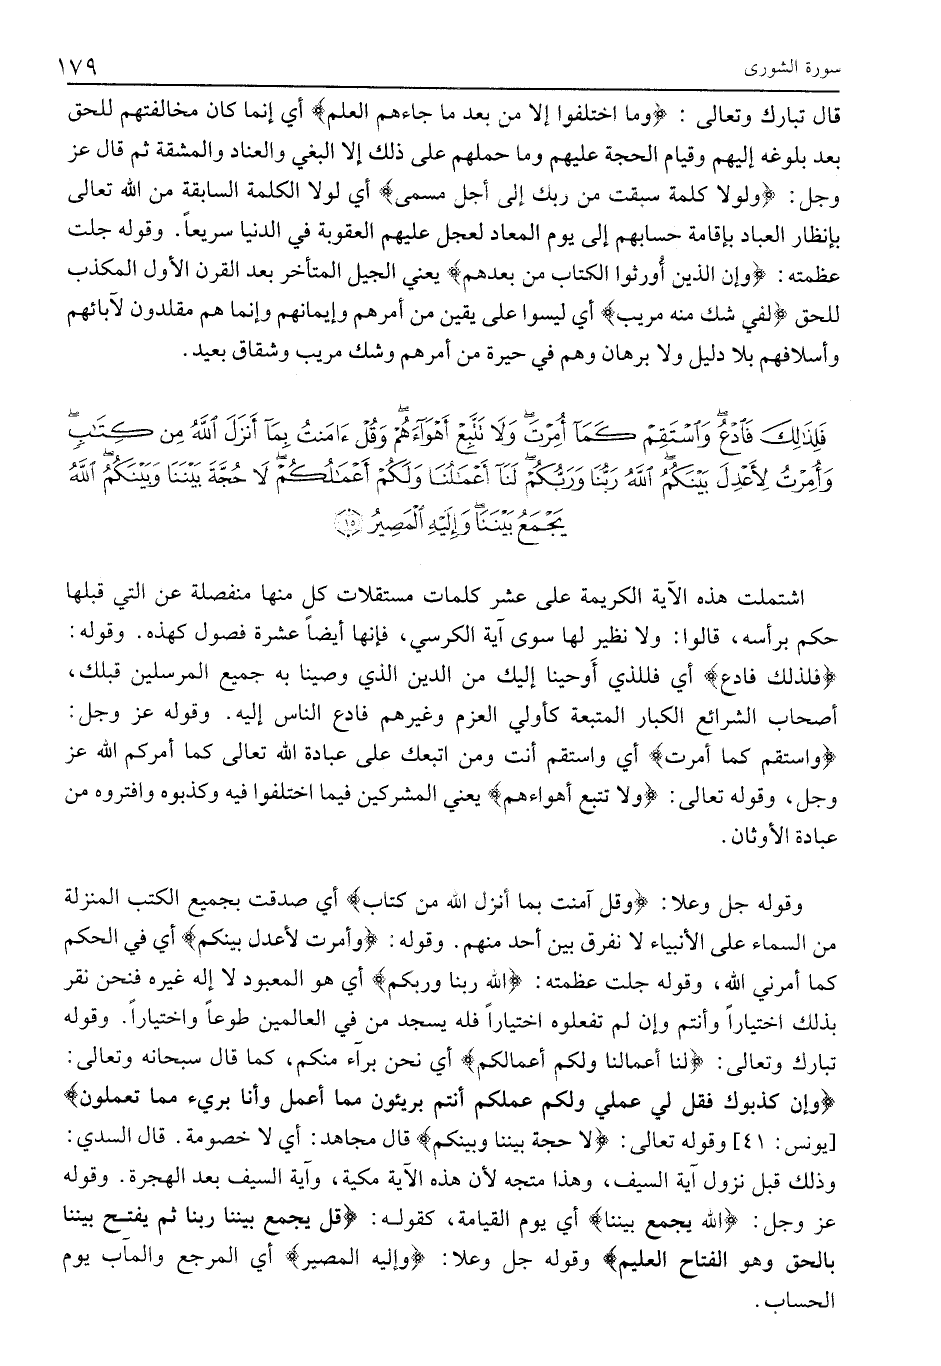 سورة الشورى ١٧٩
قال تبارك وتعالى : ﴿وما اختلفوا إلا من بعد ما جاءهم العلم﴾ أي إنما كان مخالفتهم للحق
بعد بلوغه إليهم وقيام الحجة عليهم وما حملهم على ذلك إلا البغي والعناد والمشقة ثم قال عز
وجل: ﴿ولولا كلمة سبقت من ربك إلى أجل مسمى﴾ أي لولا الكلمة السابقة من الله تعالى
بإنظار العباد بإقامة حسابهم إلى يوم المعاد لعجل عليهم العقوبة في الدنيا سريعاً. وقوله جلت
عظمته: ﴿وإن الذين أُورثوا الكتاب من بعدهم﴾ يعني الجيل المتأخر بعد القرن الأول المكذب
للحق ﴿لفي شك منه مريب﴾ أي ليسوا على يقين من أمرهم وإيمانهم وإنما هم مقلدون لآبائهم
وأسلافهم بلا دليل ولا برهان وهم في حيرة من أمرهم وشك مريب وشقاق بعيد.
فَلِذَٰلِكَ فَٱدْعُ ۖ وَٱسْتَقِمْ كَمَآ أُمِرْتَ ۖ وَلَا تَتَّبِعْ أَهْوَآءَهُمْ ۖ وَقُلْ ءَامَنتُ بِمَآ أَنزَلَ ٱللَّهُ مِن كِتَٰبٍ ۖ
وَأُمِرْتُ لِأَعْدِلَ بَيْنَكُمُ ۖ ٱللَّهُ رَبُّنَا وَرَبُّكُمْ ۖ لَنَآ أَعْمَٰلُنَا وَلَكُمْ أَعْمَٰلُكُمْ ۖ لَا حُجَّةَ بَيْنَنَا وَبَيْنَكُمُ ۖ ٱللَّهُ
يَجْمَعُ بَيْنَنَا ۖ وَإِلَيْهِ ٱلْمَصِيرُ ﴿١٥﴾
اشتملت هذه الآية الكريمة على عشر كلمات مستقلات كل منها منفصلة عن التي قبلها
حكم برأسه، قالوا: ولا نظير لها سوى آية الكرسي، فإنها أيضاً عشرة فصول كهذه. وقوله:
﴿فلذلك فادع﴾ أي فللذي أَوحينا إليك من الدين الذي وصينا به جميع المرسلين قبلك،
أصحاب الشرائع الكبار المتبعة كأولي العزم وغيرهم فادع الناس إليه. وقوله عز وجل:
﴿واستقم كما أمرت﴾ أي واستقم أنت ومن اتبعك على عبادة الله تعالى كما أمركم الله عز
وجل، وقوله تعالى: ﴿ولا تتبع أهواءهم﴾ يعني المشركين فيما اختلفوا فيه وكذبوه وافتروه من
عبادة الأوثان.
وقوله جل وعلا: ﴿وقل آمنت بما أنزل الله من كتاب﴾ أي صدقت بجميع الكتب المنزلة
من السماء على الأنبياء لا نفرق بين أحد منهم. وقوله: ﴿وأمرت لأعدل بينكم﴾ أي في الحكم
كما أمرني الله، وقوله جلت عظمته: ﴿الله ربنا وربكم﴾ أي هو المعبود لا إله غيره فنحن نقر
بذلك اختياراً وأنتم وإن لم تفعلوه اختياراً فله يسجد من في العالمين طوعاً واختياراً. وقوله
تبارك وتعالى: ﴿لنا أعمالنا ولكم أعمالكم﴾ أي نحن برآء منكم، كما قال سبحانه وتعالى:
﴿وإن كذبوك فقل لي عملي ولكم عملكم أنتم بريئون مما أعمل وأنا بريء مما تعملون﴾
[يونس: ٤١] وقوله تعالى: ﴿لا حجة بيننا وبينكم﴾ قال مجاهد: أي لا خصومة. قال السدي:
وذلك قبل نزول آية السيف، وهذا متجه لأن هذه الآية مكية، وآية السيف بعد الهجرة. وقوله
عز وجل: ﴿الله يجمع بيننا﴾ أي يوم القيامة، كقوله: ﴿قل يجمع بيننا ربنا ثم يفتح بيننا
بالحق وهو الفتاح العليم﴾ وقوله جل وعلا: ﴿وإليه المصير﴾ أي المرجع والمآب يوم
الحساب.